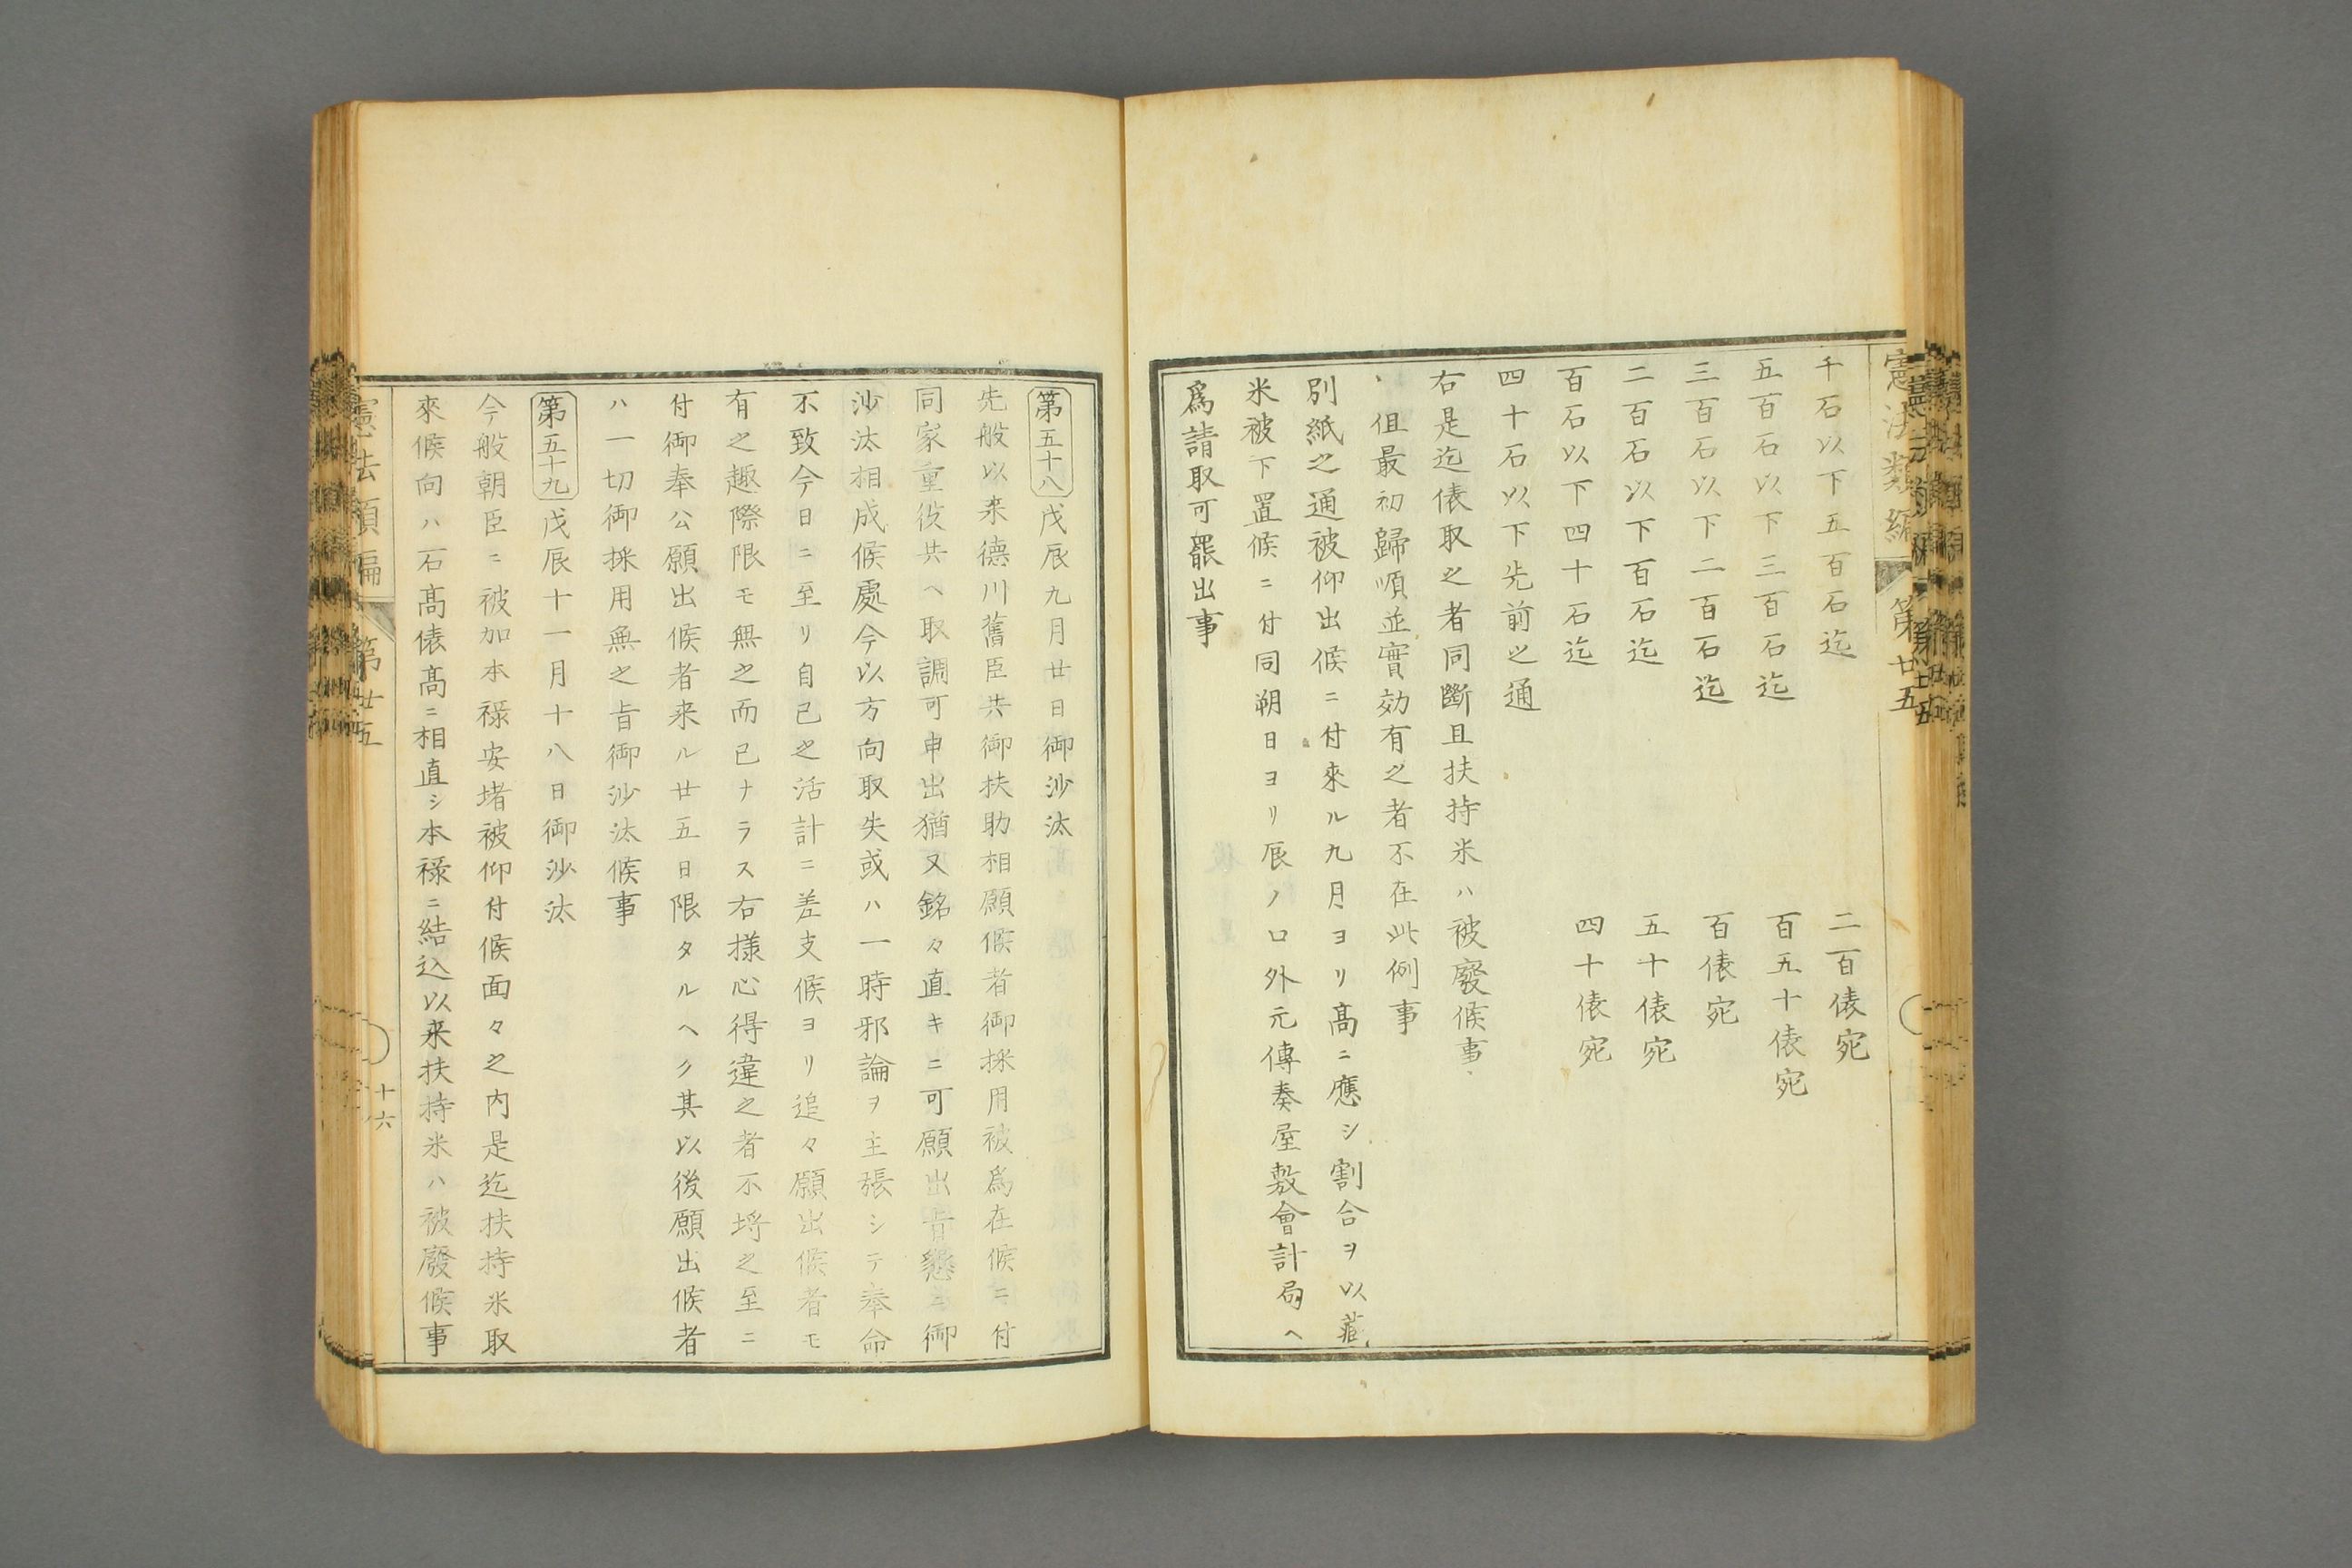 憲法類編 第廿五
千石以下五百石迄 二百俵宛
五百石以下三百石迄 百五十俵宛
三百石以下二百石迄 百俵宛
二百石以下百石迄 五十俵宛
百石以下四十石迄 四十俵宛
四十石以下先前之通
右是迄俵取之者同斷且扶持米ハ被廢候事
但最初歸順並實効有之者不在此例事
別紙之通被仰出候ニ付來ル九月ヨリ高ニ應シ割合ヲ以蔵
米被下置候ニ付同朔日ヨリ辰ノ口外元傳奏屋敷會計局ヘ
爲請取可罷出事
第五十八 戊辰九月廿日御沙汰
先般以来德川舊臣共御扶助相願候者御採用被爲在候ニ付
同家重役共ヘ取調可申出猶又銘々直キニ可願出旨懇ニ御
沙汰相成候處今以方向取失或ハ一時邪論ヲ主張シテ奉命
不致今日ニ至リ自己之活計ニ差支候ヨリ追々願出候者モ
有之趣際限モ無之而已ナラス右樣心得違之者不埒之至ニ
付御奉公願出候者来ル廿五日限タルヘク其以後願出候者
ハ一切御採用無之旨御沙汰候事
第五十九 戊辰十一月十八日御沙汰
今般朝臣ニ被加本祿安堵被仰付候面々之内是迄扶持米取
來候向ハ石高俵高ニ相直シ本祿ニ結込以来扶持米ハ被廢候事
憲法類編 第廿五 十六